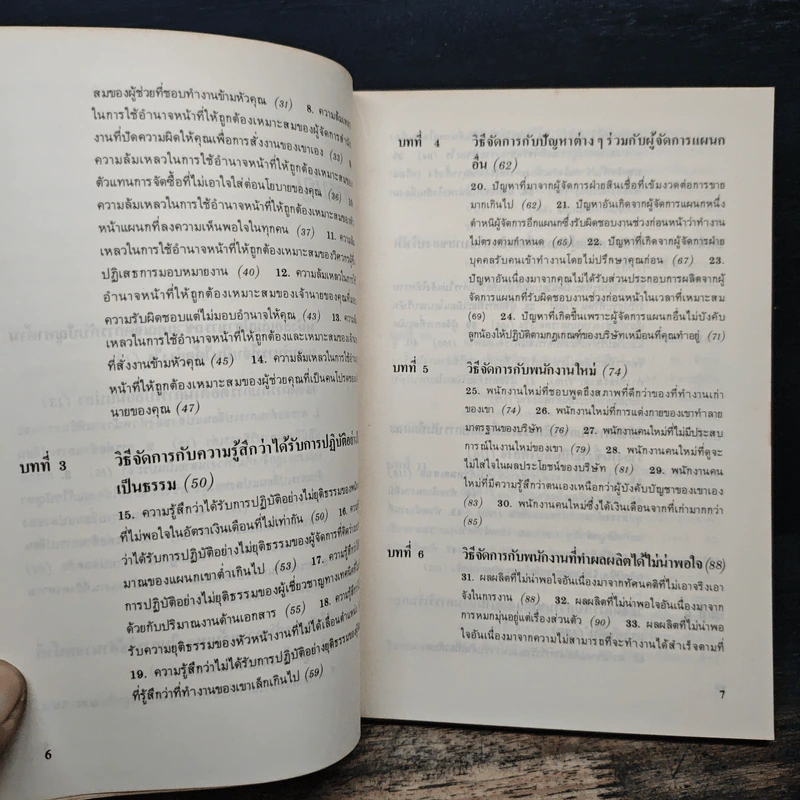 สมของผู้ช่วยที่ชอบทำงานข้ามหัวคุณ (31) 8. ความล้มเหลว
ในการใช้อำนาจหน้าที่ให้ถูกต้องเหมาะสมของผู้จัดการสำนัก
งานที่ปัดความผิดให้คุณเพื่อการสั่งงานของเขาเอง (33) 9.
ความล้มเหลวในการใช้อำนาจหน้าที่ให้ถูกต้องเหมาะสมของ
ตัวแทนการจัดซื้อที่ไม่เอาใจใส่ต่อนโยบายของคุณ (36) 10.
ความล้มเหลวในการใช้อำนาจหน้าที่ให้ถูกต้องเหมาะสมของหัว
หน้าแผนกที่ลงความเห็นพอใจในทุกคน (37) 11. ความล้ม
เหลวในการใช้อำนาจหน้าที่ให้ถูกต้องเหมาะสมของวิศวกรที่
ปฏิเสธการมอบหมายงาน (40) 12. ความล้มเหลวในการใช้
อำนาจหน้าที่ให้ถูกต้องเหมาะสมของเจ้านายของคุณที่
ความรับผิดชอบแต่ไม่มอบอำนาจให้คุณ (43) 13. ความล้ม
เหลวในการใช้อำนาจหน้าที่ให้ถูกต้องและเหมาะสมของ
ที่สั่งงานข้ามหัวคุณ (45) 14. ความล้มเหลวในการใช้อำนาจ
หน้าที่ให้ถูกต้องเหมาะสมของผู้ช่วยคุณที่เป็นคนโปรดของ
นายของคุณ (47)
บทที่ 3 วิธีจัดการกับความรู้สึกว่าได้รับการปฏิบัติอย่าง
เป็นธรรม (50)
15. ความรู้สึกว่าได้รับการปฏิบัติอย่างไม่ยุติธรรมของ
ที่ไม่พอใจในอัตราเงินเดือนที่ไม่เท่ากัน (50) 16.
ว่าได้รับการปฏิบัติอย่างไม่ยุติธรรมของผู้จัดการที่คิดว่า
มาณของแผนกเขาต่ำเกินไป (53) 17. ความรู้สึก
การปฏิบัติอย่างไม่ยุติธรรมของผู้เชี่ยวชาญทางเทคนิค
ด้วยกับปริมาณงานด้านเอกสาร (55) 18. ความรู้สึก
รับความยุติธรรมของหัวหน้างานที่ไม่ได้เลื่อนตำแหน่ง
19. ความรู้สึกว่าไม่ได้รับการปฏิบัติอย่างยุติธรรมของ
ที่รู้สึกว่าที่ทำงานของเขาเล็กเกินไป (59)
6
บทที่ 4 วิธีจัดการกับปัญหาต่าง ๆ ร่วมกับผู้จัดการแผนก
อื่น (62)
20. ปัญหาที่มาจากผู้จัดการฝ่ายสินเชื่อที่เข้มงวดต่อการขาย
มากเกินไป (62) 21. ปัญหาอันเกิดจากผู้จัดการแผนกหนึ่ง
ตำหนิผู้จัดการอีกแผนกซึ่งรับผิดชอบงานช่วงก่อนหน้าว่าทำงาน
ไม่ตรงตามกำหนด (65) 22. ปัญหาที่เกิดจากผู้จัดการฝ่าย
บุคคลรับคนเข้าทำงานโดยไม่ปรึกษาคุณก่อน (67) 23.
ปัญหาอันเนื่องมาจากคุณไม่ได้รับส่วนประกอบการผลิตจากผู้
จัดการแผนกที่รับผิดชอบงานช่วงก่อนหน้าในเวลาที่เหมาะสม
(69) 24. ปัญหาที่เกิดขึ้นเพราะผู้จัดการแผนกอื่นไม่บังคับ
ลูกน้องให้ปฏิบัติตามกฎเกณฑ์ของบริษัทเหมือนที่คุณทำอยู่ (71)
บทที่ 5 วิธีจัดการกับพนักงานใหม่ (74)
25. พนักงานใหม่ที่ชอบพูดถึงสภาพที่ดีกว่าของที่ทำงานเก่า
ของเขา (74) 26. พนักงานใหม่ที่การแต่งกายของเขาทำลาย
มาตรฐานของบริษัท (76) 27. พนักงานคนใหม่ที่ไม่มีประสบ
การณ์ในงานใหม่ของเขา (79) 28. พนักงานคนใหม่ที่ดูจะ
ไม่ใส่ใจในผลประโยชน์ของบริษัท (81) 29. พนักงานคน
ใหม่ที่มีความรู้สึกว่าตนเองเหนือกว่าผู้บังคับบัญชาของเขาเอง
(83) 30. พนักงานคนใหม่ซึ่งได้เงินเดือนจากที่เก่ามากกว่า
(85)
บทที่ 6 วิธีจัดการกับพนักงานที่ทำผลผลิตได้ไม่น่าพอใจ (88)
31. ผลผลิตที่ไม่น่าพอใจอันเนื่องมาจากทัศนคติที่ไม่เอาจริงเอา
จังในการงาน (88) 32. ผลผลิตที่ไม่น่าพอใจอันเนื่องมาจาก
การหมกมุ่นอยู่แต่เรื่องส่วนตัว (90) 33. ผลผลิตที่ไม่น่าพอ
ใจอันเนื่องมาจากความไม่สามารถที่จะทำงานได้สำเร็จตามที่
7